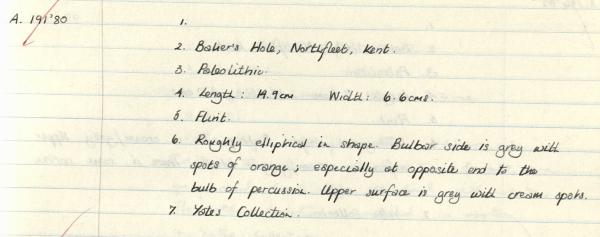 A. 191'80
1.
2. Baker's Hole, Northfleet, Kent.
3. Paleolithic.
4. Length: 14.9cm Width: 6.6cms.
5. Flint.
6. Roughly elliptical in shape. Bulbar side is grey with
spots of orange; especially at opposite end to the
bulb of percussion. Upper surface is grey with cream spots.
7. Yates Collection.